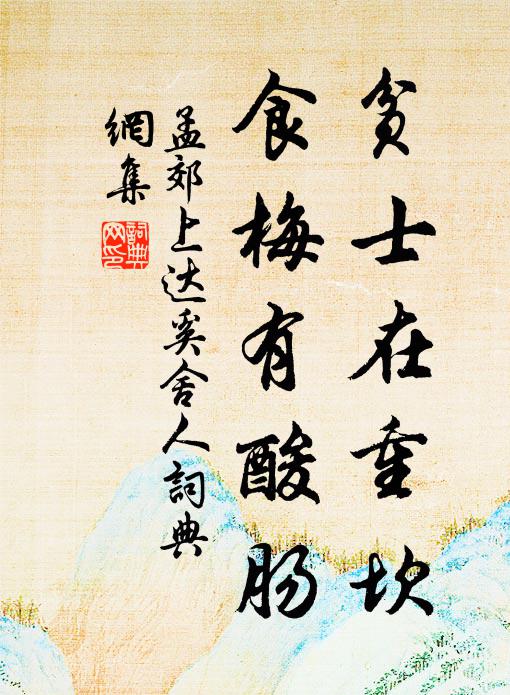 贫士在重坎
食梅有酸肠
孟郊上达奚舍人詞典
網集
詞典
网印